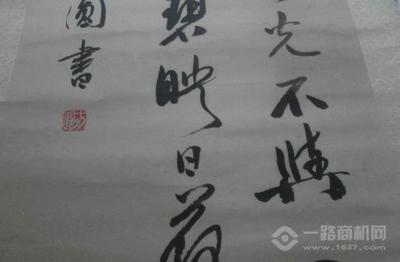 光不與
碧映日荷
書
一路商机网
www.1637.com